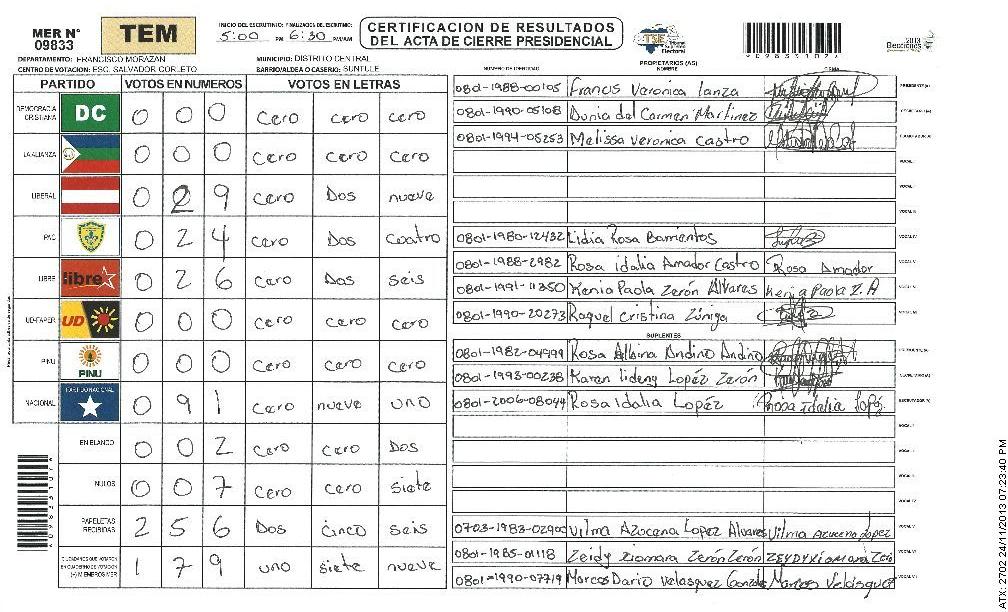 MER N° 09833
TEM
INICIO DEL ESCRUTINIO: 5:00 PM FINALIZACION DEL ESCRUTINIO: 6:30 PM/AM
CERTIFICACION DE RESULTADOS
DEL ACTA DE CIERRE PRESIDENCIAL
TSE
Tribunal Supremo Electoral
*09833107*
2013 Elecciones
DEPARTAMENTO: FRANCISCO MORAZAN
MUNICIPIO: DISTRITO CENTRAL
CENTRO DE VOTACION: ESC. SALVADOR CORLETO
BARRIO/ALDEA O CASERIO: SUNTULE
PARTIDO VOTOS EN NUMEROS VOTOS EN LETRAS
DEMOCRACIA CRISTIANA DC 0 0 0 cero cero cero
LA ALIANZA 0 0 0 cero cero cero
LIBERAL 0 2 9 cero Dos nueve
PAC 0 2 4 cero Dos cuatro
LIBRE libre 0 2 6 cero Dos seis
UD-FAPER UD 0 0 0 cero cero cero
PINU PINU 0 0 0 cero cero cero
NACIONAL PARTIDO NACIONAL 0 9 1 cero nueve uno
EN BLANCO 0 0 2 cero cero Dos
NULOS 0 0 7 cero cero siete
PAPELETAS RECIBIDAS 2 5 6 Dos cinco seis
CIUDADANOS QUE VOTARON EN CUADERNO DE VOTACION (+) MIEMBROS MER 1 7 9 uno siete nueve
NUMERO DE IDENTIDAD PROPIETARIOS (AS) NOMBRE FIRMA
0801-1988-00105 Francis Veronica Lanza PRESIDENTE(A)
0801-1990-05108 Dunia del Carmen Martinez SECRETARIO(A)
0801-1994-05253 Melissa Veronica Castro ESCRUTADOR(A)
VOCAL I
VOCAL II
VOCAL III
0801-1980-12432 Lidia Rosa Barrientos VOCAL IV
0801-1988-2982 Rosa idalia Amador Castro Rosa Amador VOCAL V
0801-1991-11350 Kenia Paola Zerón Alvares Kenia Paola Z.A VOCAL VI
0801-1990-20273 Raquel Cristina Zúniga
SUPLENTES
0801-1982-04999 Rosa Albina Andino Andino PRESIDENTE(A)
0801-1993-00238 Karen lideny Lopéz Zerón SECRETARIO(A)
0801-2006-08044 Rosa Idalia Lopéz Rosa idalia lopéz ESCRUTADOR(A)
VOCAL I
VOCAL II
VOCAL III
VOCAL IV
0703-1983-02900 Vilma Azucena Lopez Alvares Vilma Azucena Lopez VOCAL V
0801-1985-01118 Zeidy Xiomara Zerón Zerón VOCAL VI
0801-1990-07719 Marcos Dario Velasquez Marcos Velásquez
*09833107*
ATX-2702 24/11/2013 07:23:40 PM